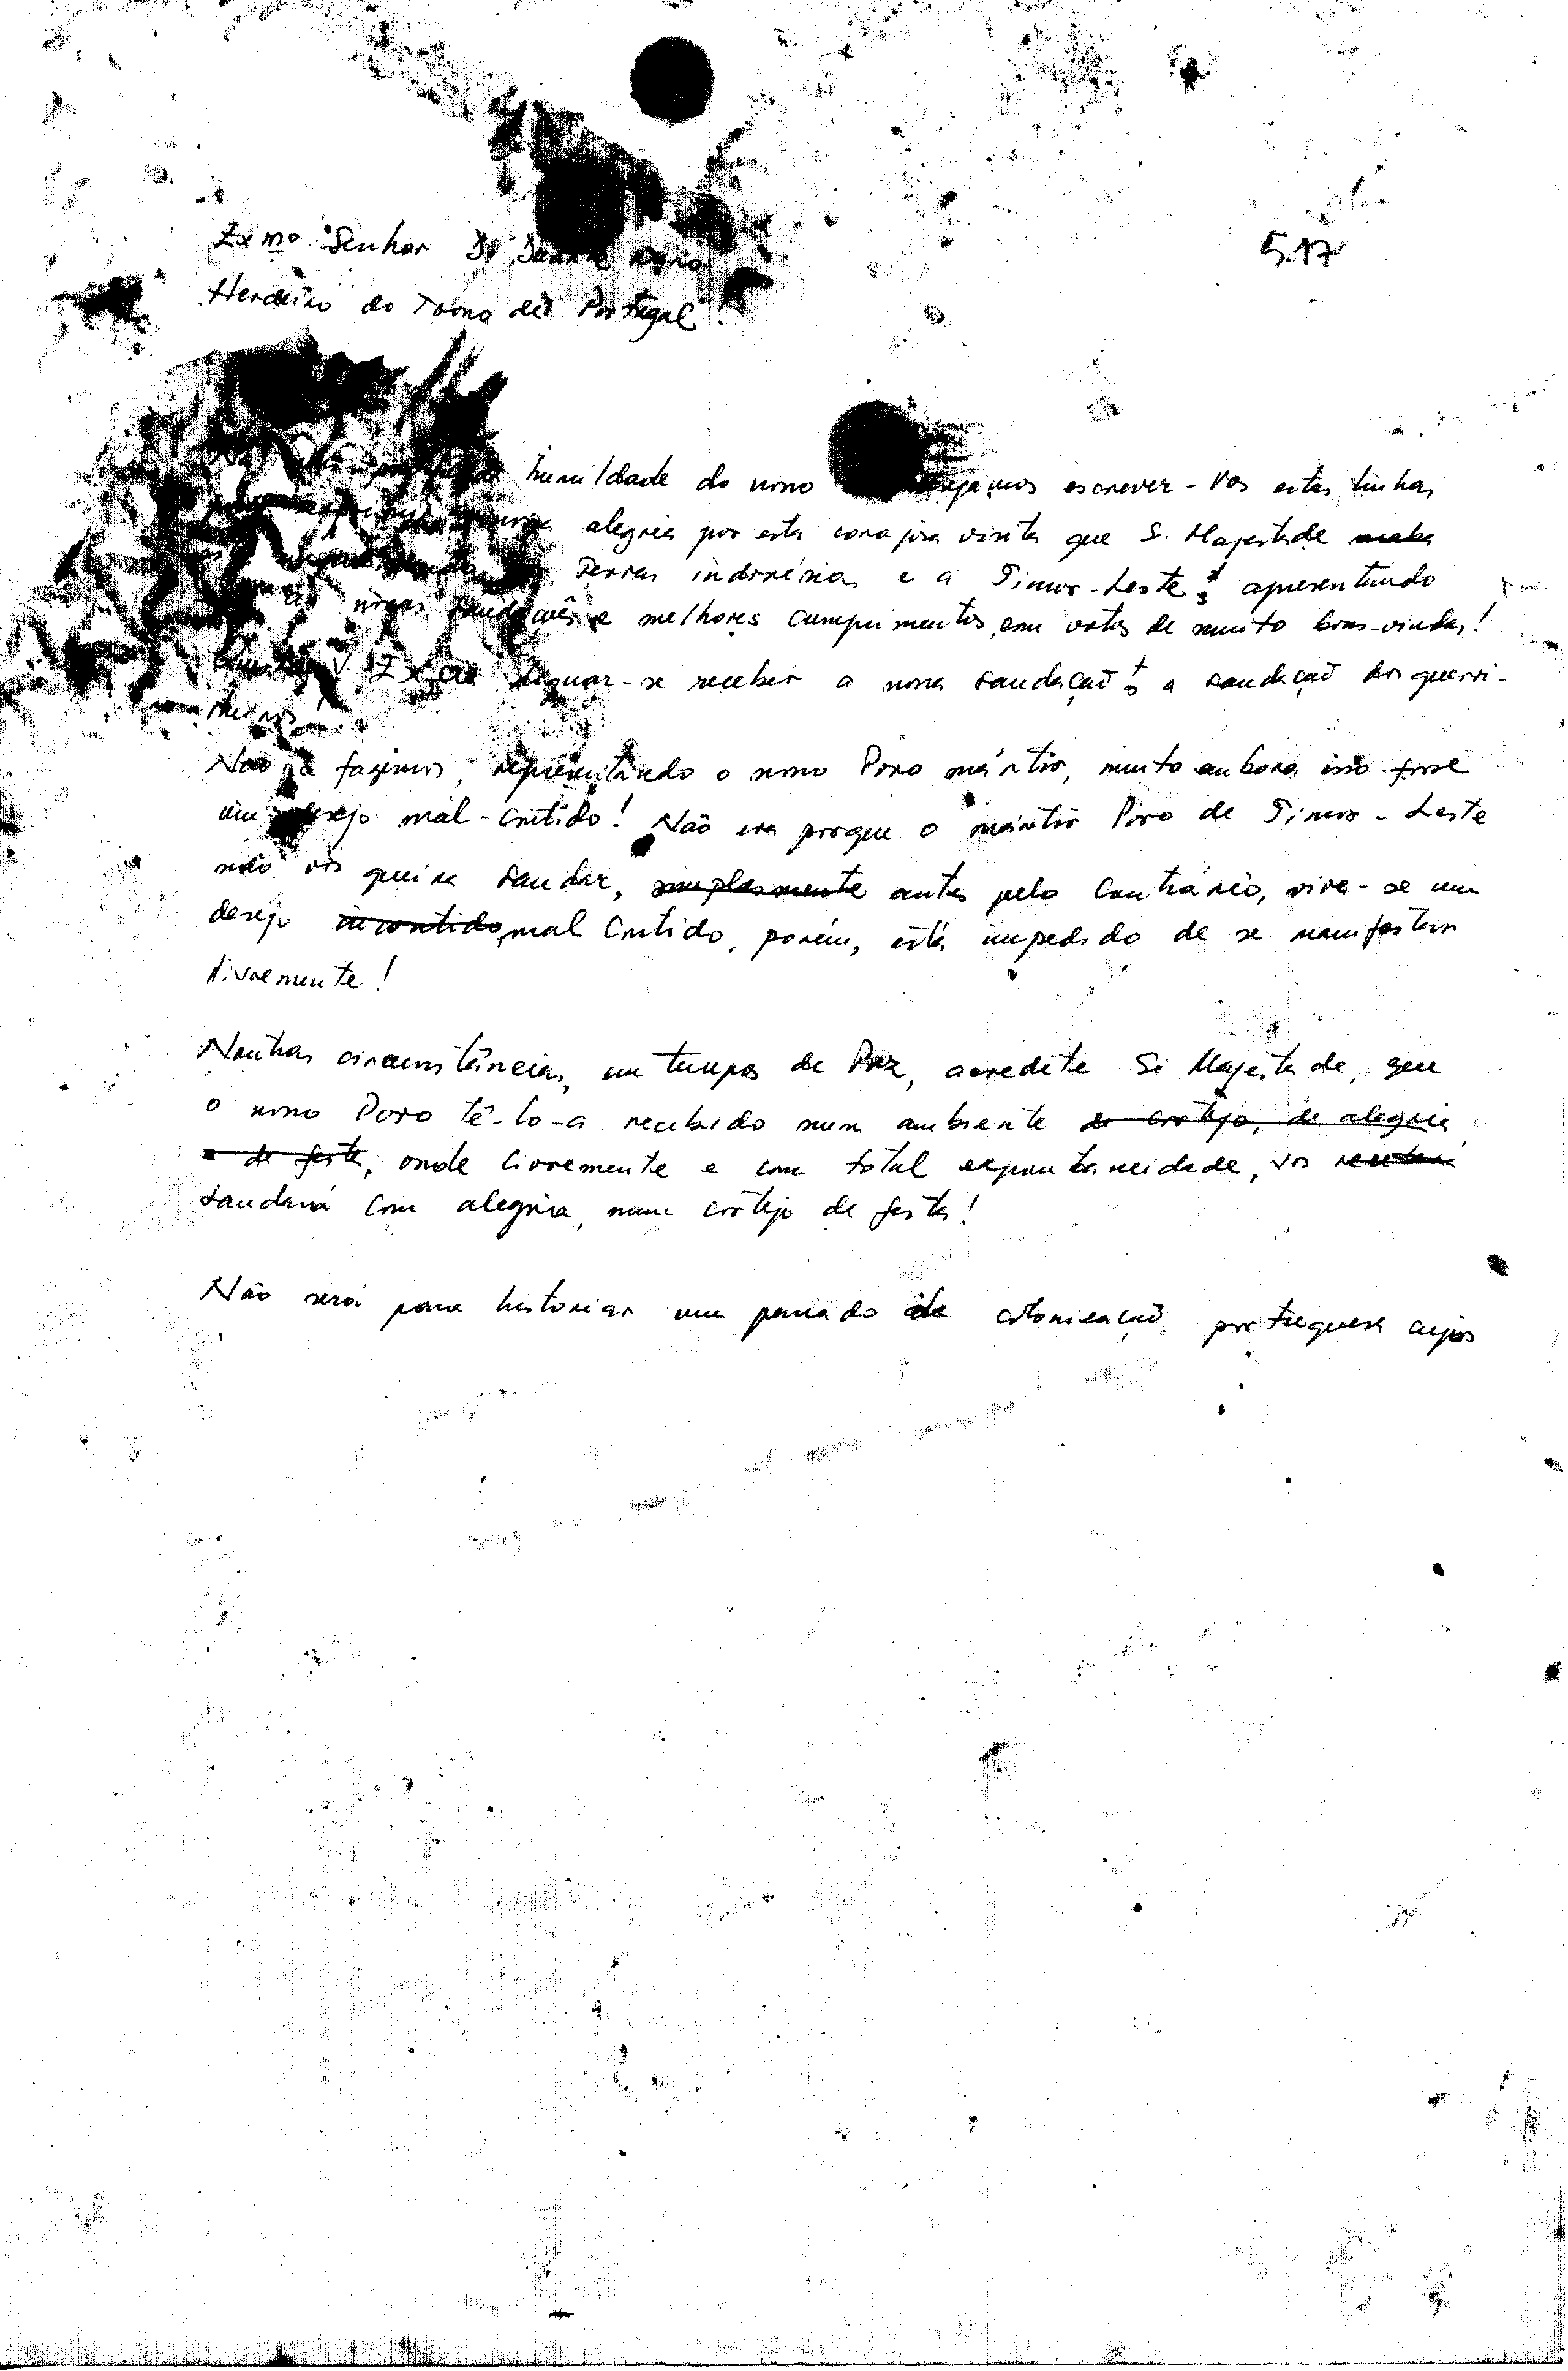 5.17
Exmo Senhor D. Duarte
Herdeiro do Trono de Portugal
humildade do nosso escrever-vos estas linhas
alegria por esta corajosa visita que S. Majestade
Terras indonésias e a Timor-Leste, apresentando
as nossas saudações e melhores cumprimentos, com votos de muito boas-vindas!
V. Excia dignar-se receber a nossa saudação, a saudação dos guerri-
lheiros!
Não o fazemos, representando o nosso Povo mártir, muito embora isso fosse
um desejo mal-contido! Não era porque o mártir Povo de Timor-Leste
não vos queira saudar, simplesmente antes pelo contrário, vive-se um
desejo incontido, mal contido, porém, está impedido de se manifestar
livremente!
Noutras circunstâncias, em tempos de Paz, acredite S. Majestade, que
o nosso Povo tê-lo-á recebido num ambiente de cortejo, de alegria
e de festa, onde livremente e com total expontaneidade, vos
saudará com alegria, num cortejo de festa!
Não será para historiar um passado de colonização portuguesa cujos